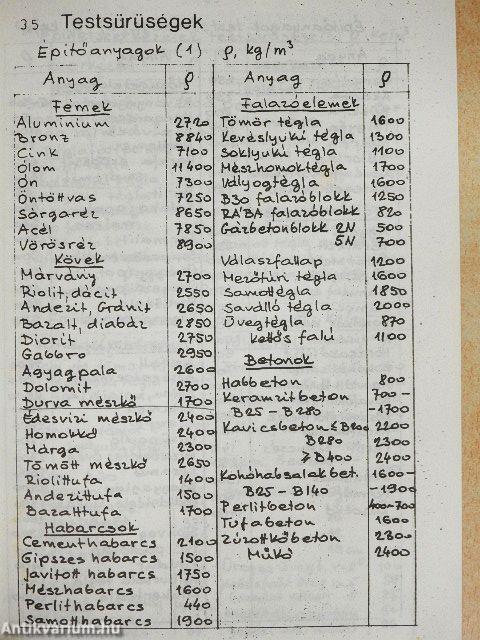 35 Testsürüségek
Epitőanyagok (1) ρ, kg/m³
Anyag ρ
Fémek
Aluminium 2720
Bronz 8840
Cink 7100
Ólom 11400
Ón 7300
Öntöttvas 7250
Sárgaréz 8650
Acél 7850
Vörösréz 8900
Kövek
Márvány 2700
Riolit, dácit 2550
Andezit, Gránit 2650
Bazalt, diabáz 2850
Diorit 2750
Gabbro 2950
Agyagpala 2600
Dolomit 2700
Durva mészkő 1700
Édesvizi mészkő 2400
Homokkő 2400
Márga 2300
Tömött mészkő 2650
Riolittufa 1400
Andezittufa 1500
Bazalttufa 1700
Habarcsok
Cementhabarcs 2100
Gipszes habarcs 1500
Javitott habarcs 1750
Mészhabarcs 1600
Perlithabarcs 440
Samotthabarcs 1900
Anyag ρ
Falazóelemek
Tömör tégla 1600
Kevéslyukú tégla 1300
Soklyukú tégla 1100
Mészhomoktégla 1700
Vályogtégla 1600
B30 falazóblokk 1250
RÁBA falazóblokk 820
Gázbetonblokk 2N 500
5N 700
Válaszfallap 1200
Mezőtúri tégla 1600
Samottégla 1850
Saválló tégla 2000
Üvegtégla 870
kettős falú 1100
Betonok
Habbeton 800
Keramzitbeton 700-
B25 - B280 -1700
Kavicsbeton ≤ B200 2200
B280 2300
≥ B400 2400
Kohóhabsalakbet. 1600-
B25 - B140 -1900
Perlitbeton 400-700
Tufabeton 1600
Zúzottkőbeton 2300
Műkő 2400
Antikvarium.hu